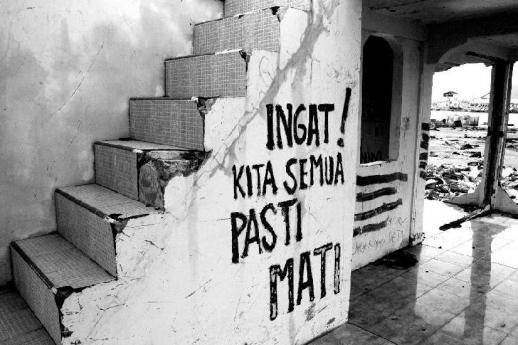 INGAT!
KITA SEMUA
PASTI
MATI